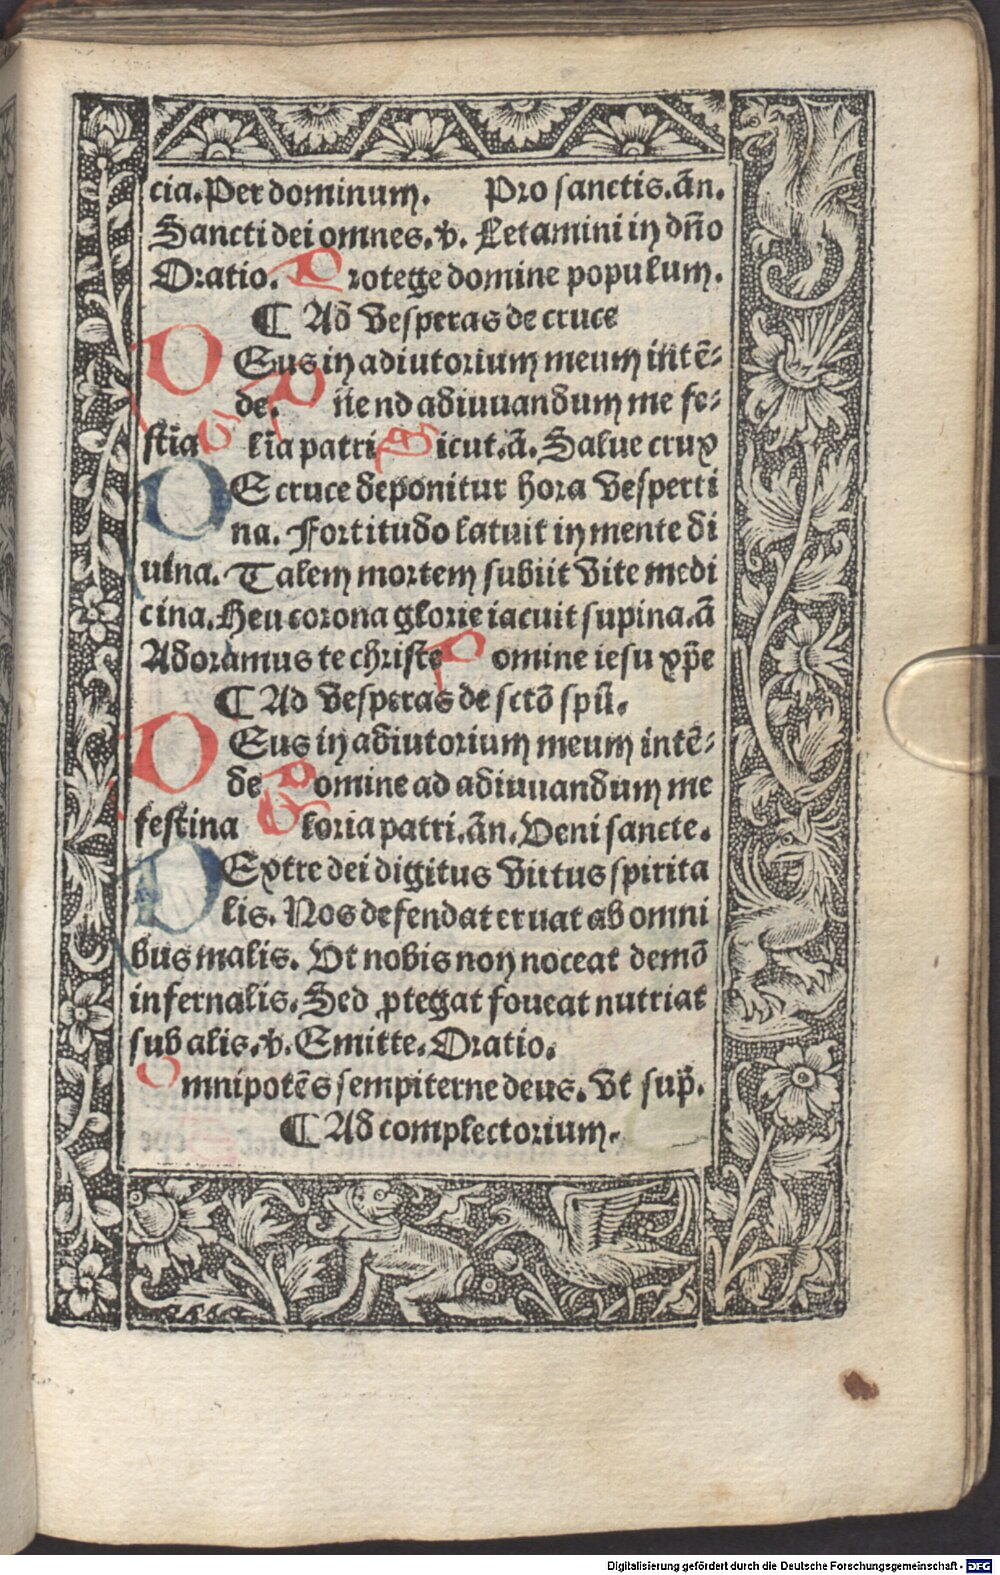 cia. Per dominum. Pro sanctis. ān.
Sancti dei omnes. v. Letamini in dño
Oratio. Protege domine populum.
¶ Ad Vesperas de cruce
DEus in adiutorium meum intē-
de. Dñe nd adiuuandum me fe-
stīa Glīa patri Sicut. ā. Salue crux
DE cruce deponitur hora Vesperti
na. Fortitudo latuit in mente di
uina. Talem mortem subiit Vite medi
cina. Heu corona glorie iacuit supina. ā
Adoramus te christe Domine iesu xp̄e
¶ Ad Vesperas de sctō spū.
DEus in adiutorium meum intē-
de Domine ad adiuuandum me
festina Gloria patri. ān. Veni sancte.
DExtre dei digitus Virtus spirita
lis. Nos defendat eruat ab omni
bus malis. Vt nobis non noceat demō
infernalis. Sed ꝓtegat foueat nutriat
sub alis. v. Emitte. Oratio.
Omnipotēs sempiterne deus. Vt sup̄.
¶ Ad complectorium.
Digitalisierung gefördert durch die Deutsche Forschungsgemeinschaft - DFG